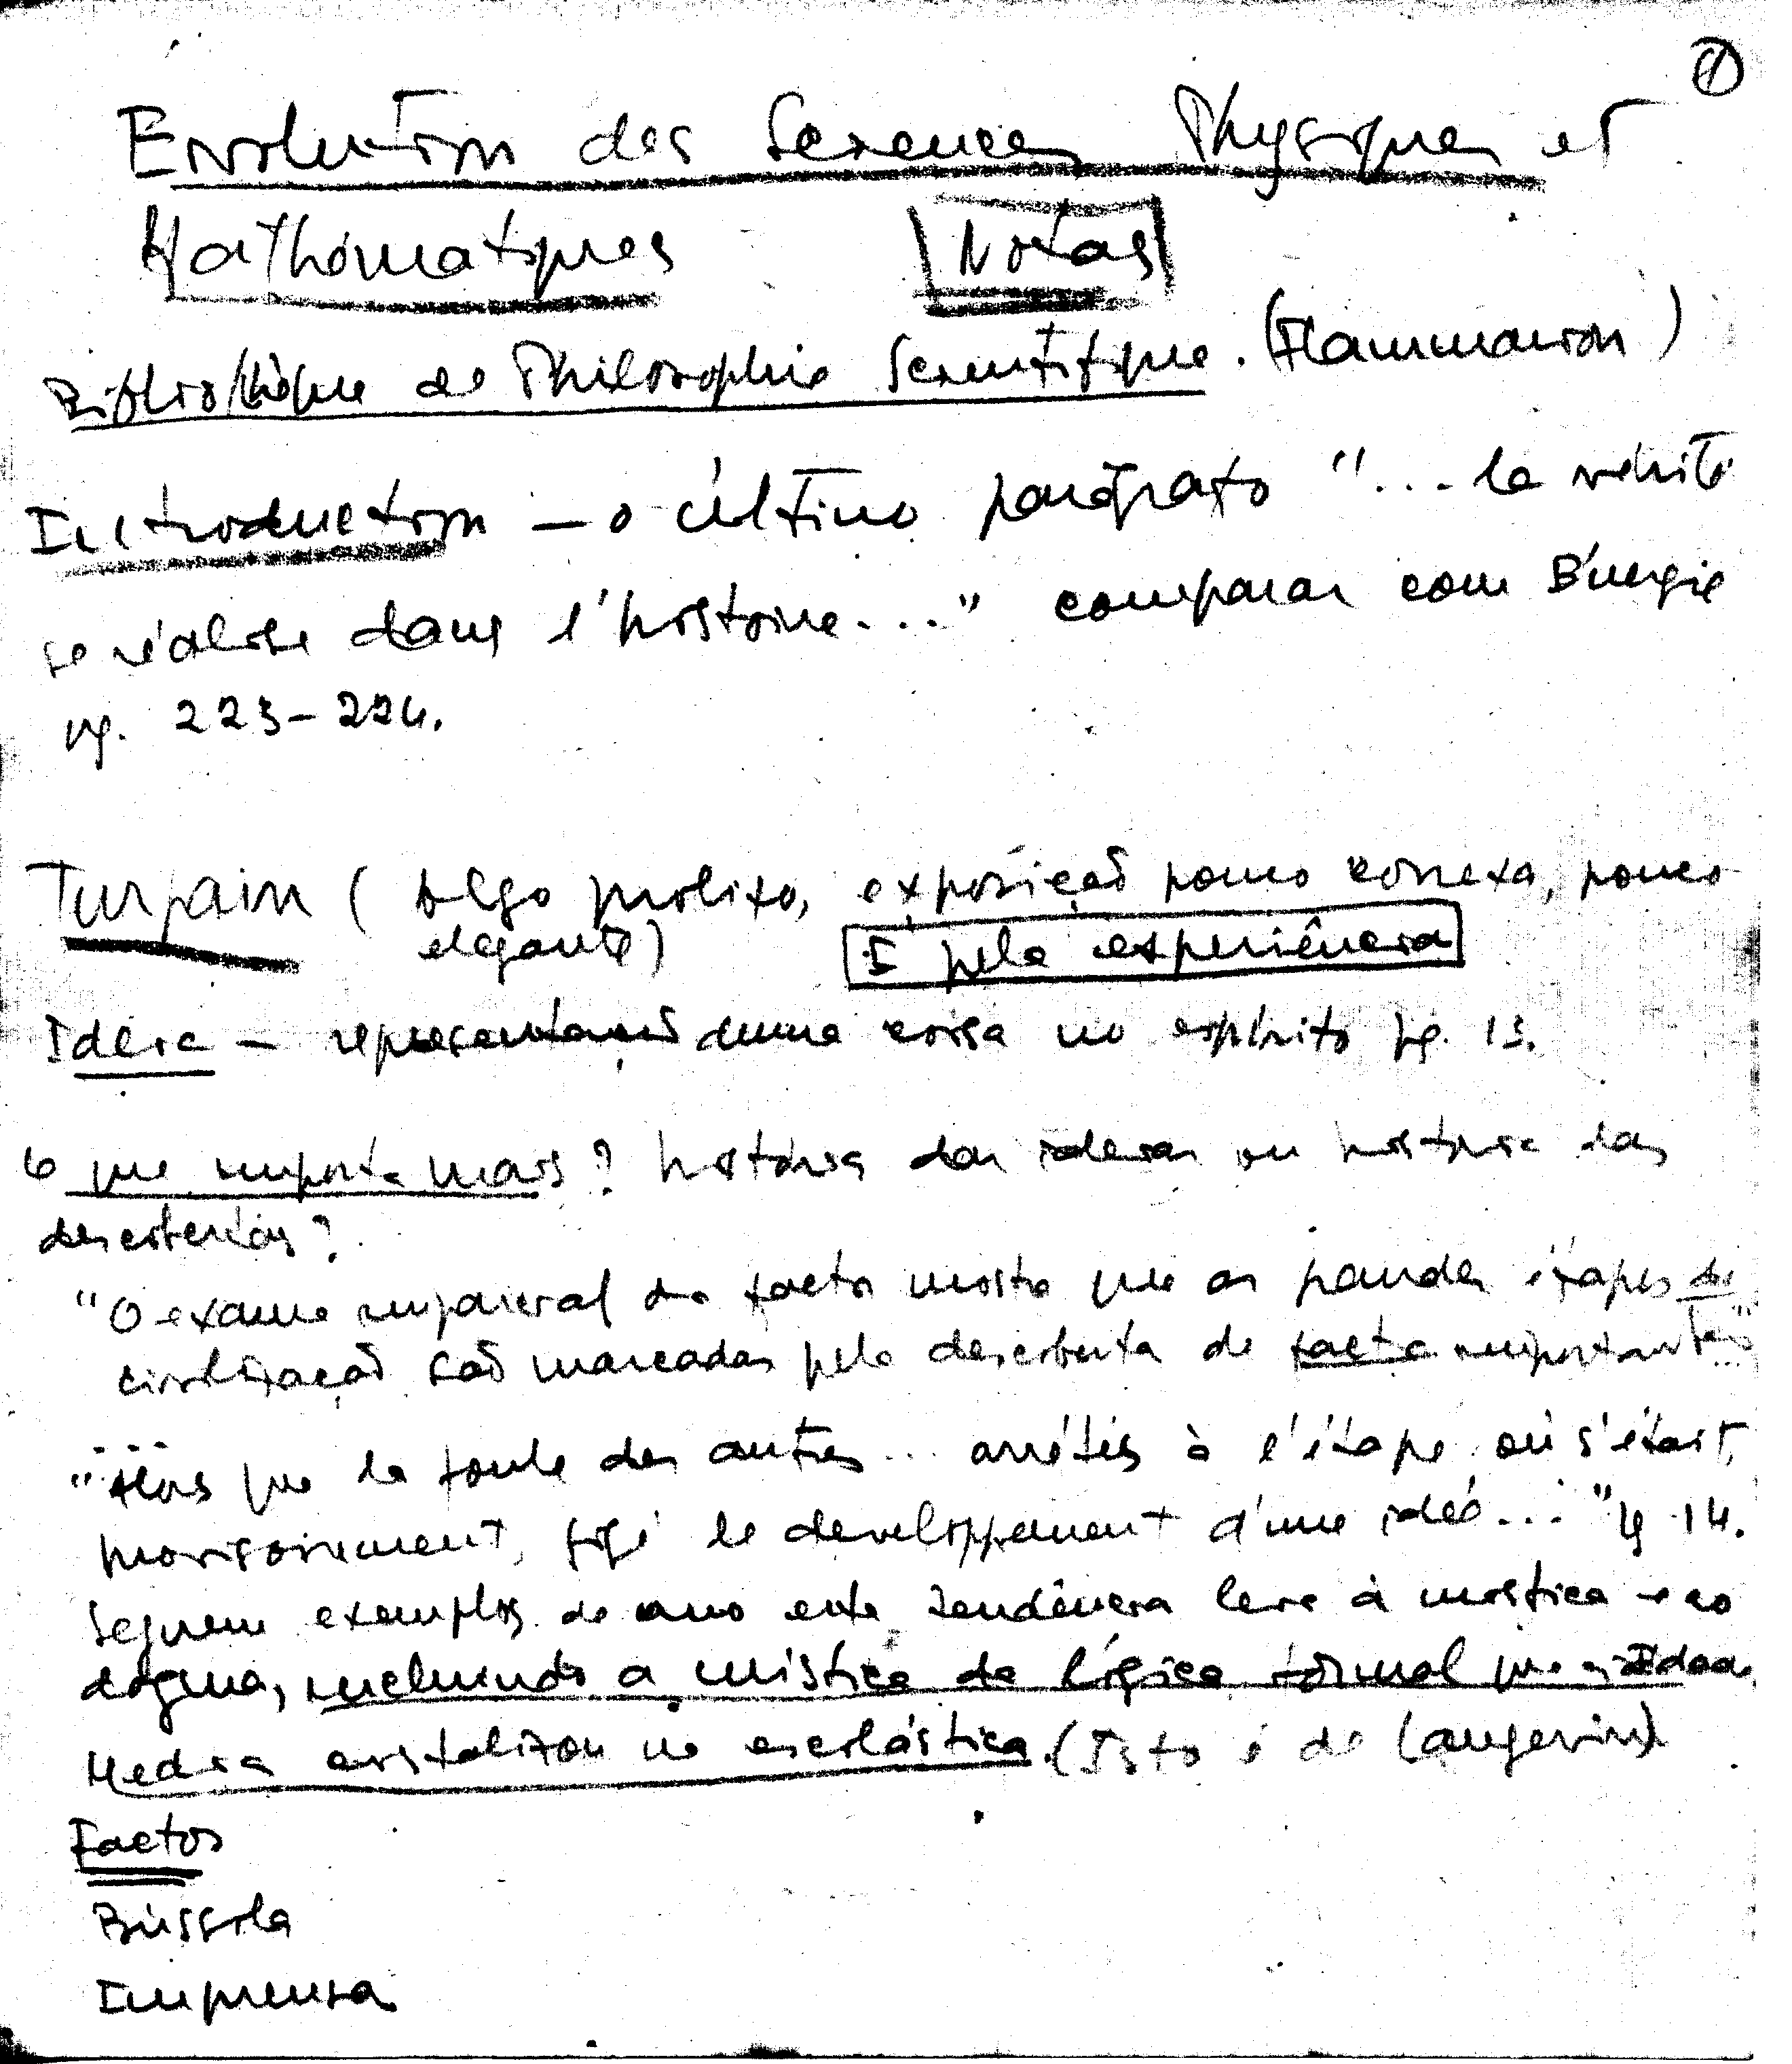 1
Evolution des Sciences Physiques et
Mathématiques Notas
Bibliothèque de Philosophie Scientifique. (Flammarion)
Introduction — o último parágrafo "... la vérité
se réalise dans l'histoire..." comparar com
pg. 223-224.
Turpain (algo prolixo, exposição pouco conexa, pouco
elegante) I pela experiência
Ideia — representação duma coisa no espírito pg. 13.
O que importa mais? história das ideias ou história das
descobertas?
"O exame imparcial dos factos mostra que as grandes étapes da
civilização são marcadas pela descoberta de facto importantes"
...
"Alors que la foule des autres... arrêtés à l'étape où s'était,
provisoirement, figé le developpement d'une idée..." pg. 14.
Seguem exemplos de como esta tendência leva à mística e ao
dogma, incluindo a mística da lógica formal que a Idade
Media cristalizou na escolástica. (Isto é de Langevin)
Factos
Bússola
Imprensa